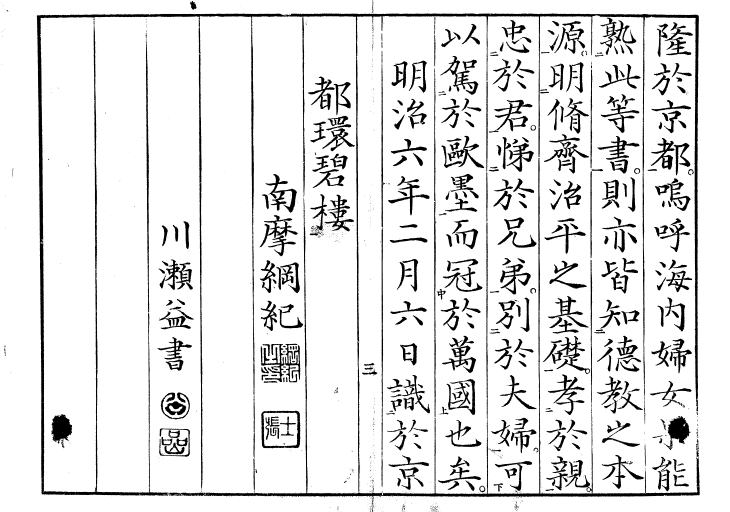 隆於京都。嗚呼海内婦女能
熟此等書。則亦皆知德教之本
源。明脩齊治平之基礎。孝於親。
忠於君。悌於兄弟。別於夫婦。可
以駕於歐墨而冠於萬國也矣。
明治六年二月六日識於京
三
都環碧樓
南摩綱紀
士張
川瀨益書